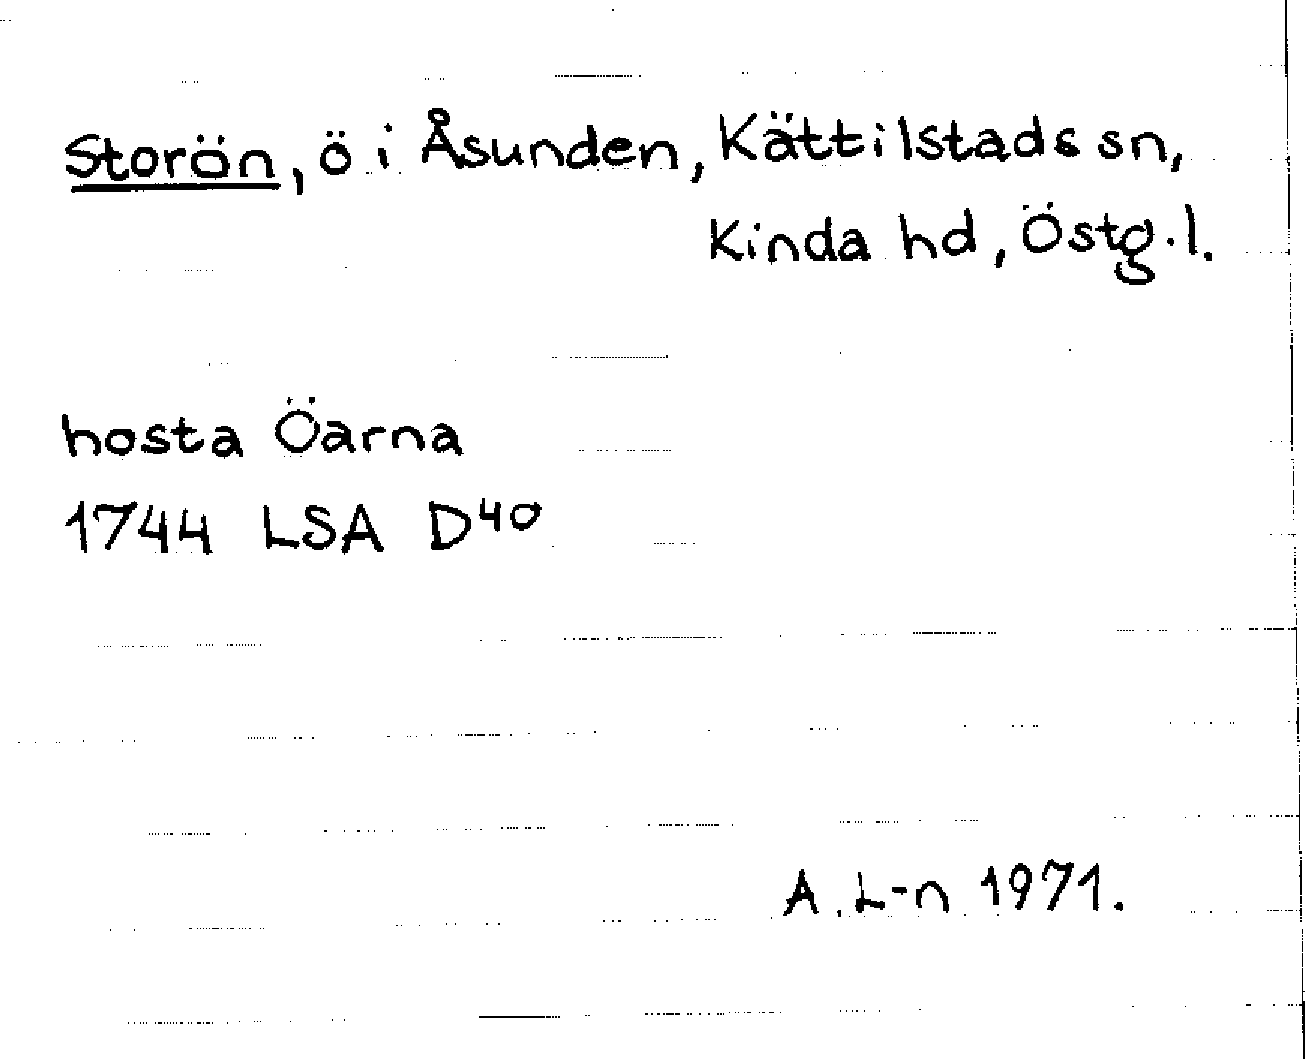 Storön, ö i Åsunden, Kättilstads sn,
Kinda hd, Östg.l.
hosta Öarna
1744 LSA D40
A. L-n 1971.